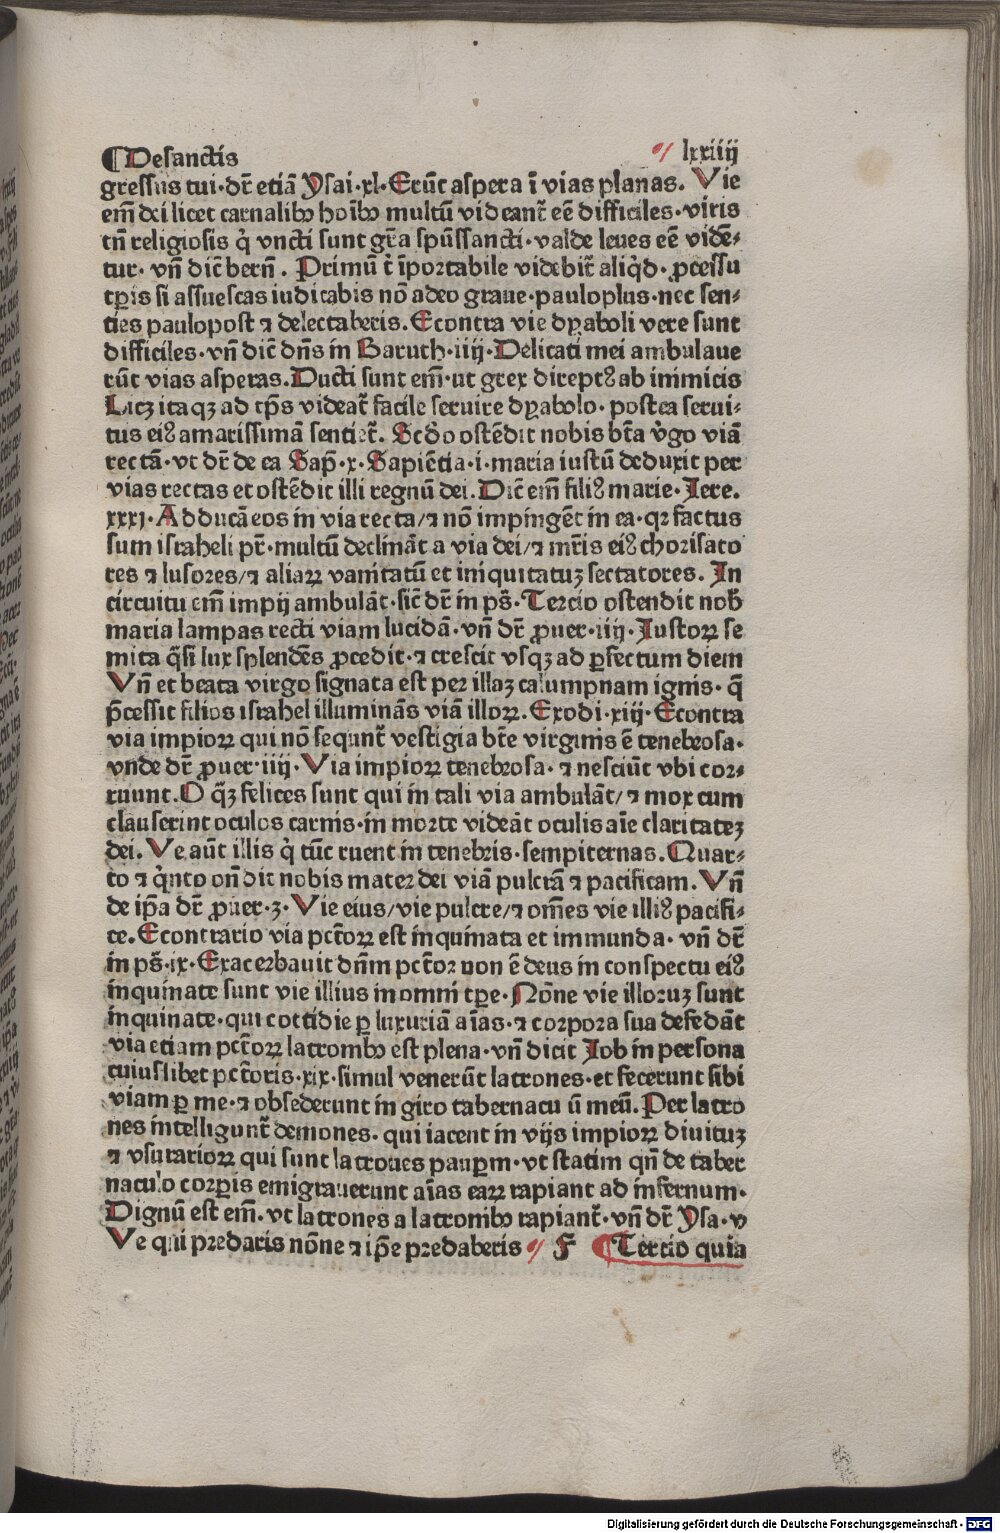 ¶ De sanctis lxxiiij
gressus tui·dr̄ etiā Ysai·xl·Erūt aspera ī vias planas. Vie
em̄ dei licet carnalibꝰ hoībꝰ multū videant̄ eē difficiles·viris
tn̄ religiosis q̇ vncti sunt gr̄a spūssancti·valde leues eē vidē⸗
tur·vn̄ dic̄ bern̄. Primū t̄ īportabile videbit̄ aliq̇d·ꝓcessu
tꝑis si assuescas iudicabis nō adeo graue·pauloplus·nec sen⸗
ties paulopost ⁊ delectaberis. Econtra vie dyaboli vere sunt
difficiles·vn̄ dic̄ dn̄s in Baruch·iiij·Delicati mei ambulaue
rūt vias asperas. Ducti sunt em̄·ut grex direptꝰ ab inimicis
Licꝫ itaqꝫ ad tp̄s videat̄ facile seruire dyabolo·postea serui⸗
tus eiꝰ amarissimā sentiet̄. Scd̓o ostēdit nobis bt̄a v̓go viā
rectā·vt dr̄ de ea Sap̄·x·Sapiētia·i·maria iustū deduxit per
vias rectas et ostēdit illi regnū dei. Dic̄ em̄ filiꝰ marie·Iere.
xxxj·Adducā eos in via recta/⁊ nō impingēt in ea·qꝛ factus
sum israheli pr̄·multū declināt a via dei/⁊ mr̄is eiꝰ chorisato
res ⁊ lusores/⁊ aliaꝝ vanitatū et iniquitatuꝫ sectatores. In
circuitu em̄ impij ambulāt·sic̄ dr̄ in ps̄·Tercio ostendit nob̄
maria lampas recti viam lucidā·vn̄ dr̄ ꝓuer·iiij·Iustoꝝ se
mita q̄si lux splendēs ꝓcedit·⁊ crescit vsqꝫ ad ꝑfectum diem
Vn̄ et beata virgo signata est per illaꝫ calumpnam ignis·q̄
p̄cessit filios israhel illuminās viā illoꝝ. Exodi·xiij·Econtra
via impioꝝ qui nō sequnt̄ vestigia bt̄e virginis ē tenebrosa·
vnde dr̄ ꝓuer·iiij·Via impioꝝ tenebrosa·⁊ nesciūt vbi cor⸗
ruunt. O q̄ꝫ felices sunt qui in tali via ambulāt/⁊ mox cum
clauserint oculos carnis·in morte videāt oculis aīe claritateꝫ
dei. Ve aūt illis q̇ tūc ruent in tenebris·sempiternas. Quar⸗
to ⁊ q̇nto on̄dit nobis mater dei viā pulcrā ⁊ pacificam. Vn̄
de ip̄a dr̄ ꝓuer·3·Vie eius/vie pulcre/⁊ om̄es vie illiꝰ pacifi⸗
ce. Econtrario via pctōꝝ est inquinata et immunda·vn̄ dr̄
in ps̄·ix·Exacerbauit dn̄m pctōꝛ non ē deus in conspectu eiꝰ
inquinate sunt vie illius in omni tꝑe·Nōne vie illoruꝫ sunt
inquinate·qui cottidie ꝑ luxuriā aīas·⁊ corpora sua defedāt
via etiam pctōꝝ latronibꝰ est plena·vn̄ dicit Iob in persona
cuiuslibet pctōris·xix·simul venerūt latrones·et fecerunt sibi
viam ꝑ me·⁊ obsederunt in giro tabernacu ū meū. Per latro
nes intelligunt̄ demones·qui iacent in vijs impioꝝ diuituꝫ
⁊ vsurarioꝝ qui sunt latrones pauꝑm·vt statim qn̄ de taber
naculo corꝑis emigrauerunt aīas eaꝝ rapiant ad infernum·
Dignū est em̄·vt latrones a latronibꝰ rapiant̄·vn̄ dr̄ Ysa·v
Ve qui predaris nōne ⁊ ip̄e predaberis F ¶ Tercio quia
Digitalisierung gefördert durch die Deutsche Forschungsgemeinschaft - DFG